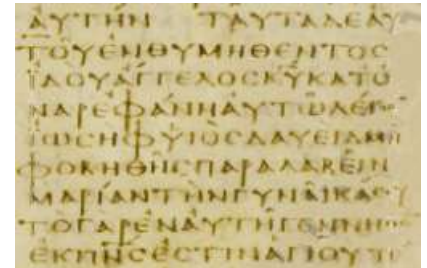 ΑΥΤΗΝ ΤΑΥΤΑΔΕΑΥ
ΤΟΥΕΝΘΥΜΗΘΕΝΤΟϹ
ΙΔΟΥΑΓΓΕΛΟϹΚ̅Υ̅ΚΑΤΟ
ΝΑΡΕΦΑΝΗΑΥΤΩΛΕΓΩ
ΙΩϹΗΦΥΙΟϹΔΑΥΕΙΔΜΗ
ΦΟΒΗΘΗϹΠΑΡΑΛΑΒΕΙΝ
ΜΑΡΙΑΝΤΗΝΓΥΝΑΙΚΑϹΟΥ
ΤΟΓΑΡΕΝΑΥΤΗΓΕΝΝΗΘΕ
ΕΚΠ̅Ν̅Ϲ̅ΕϹΤΙΝΑΓΙΟΥΤΕ